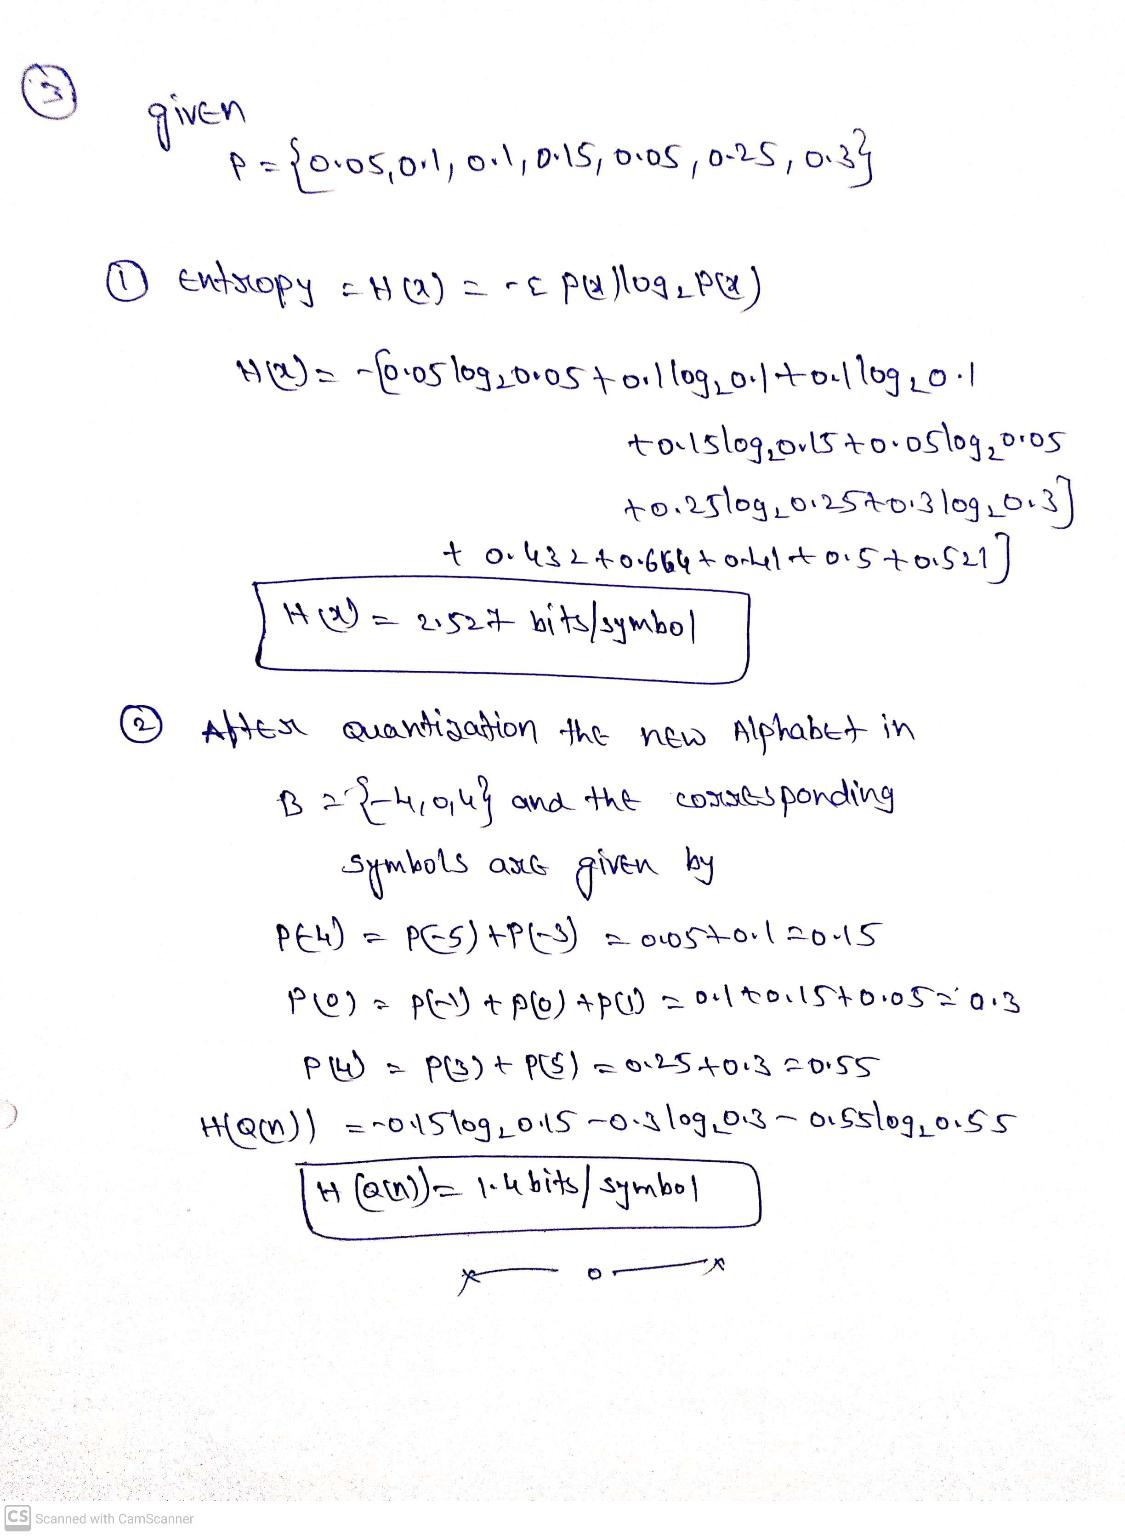 3
given
P = {0.05, 0.1, 0.1, 0.15, 0.05, 0.25, 0.3}
① Entropy = H(x) = -Σ P(x) log₂ P(x)
H(x) = -[0.05 log₂ 0.05 + 0.1 log₂ 0.1 + 0.1 log₂ 0.1
+ 0.15 log₂ 0.15 + 0.05 log₂ 0.05
+ 0.25 log₂ 0.25 + 0.3 log₂ 0.3]
+ 0.432 + 0.664 + 0.41 + 0.5 + 0.521]
H(x) = 2.527 bits/symbol
② After quantization the new Alphabet in
B = {-4, 0, 4} and the corresponding
symbols are given by
P(-4) = P(-5) + P(-3) = 0.05 + 0.1 = 0.15
P(0) = P(-1) + P(0) + P(1) = 0.1 + 0.15 + 0.05 = 0.3
P(4) = P(3) + P(5) = 0.25 + 0.3 = 0.55
H(Q(n)) = -0.15 log₂ 0.15 - 0.3 log₂ 0.3 - 0.55 log₂ 0.55
H(Q(n)) = 1.4 bits/symbol
CS Scanned with CamScanner